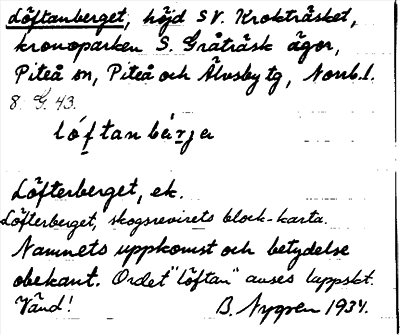 Löftanberget, höjd SV. Krokträsket,
kronoparken S. Gråträsk ägor,
Piteå sn, Piteå och Älvsby tg, Norrb. l.
8. G. 43.
lóf̱tan bèṟja
Löfterberget, ek.
Löfterberget, skogsrevirets block-karta.
Namnets uppkomst och betydelse
obekant. Ordet "löftan" anses lappskt.
Vänd! B. Nygren 1934.